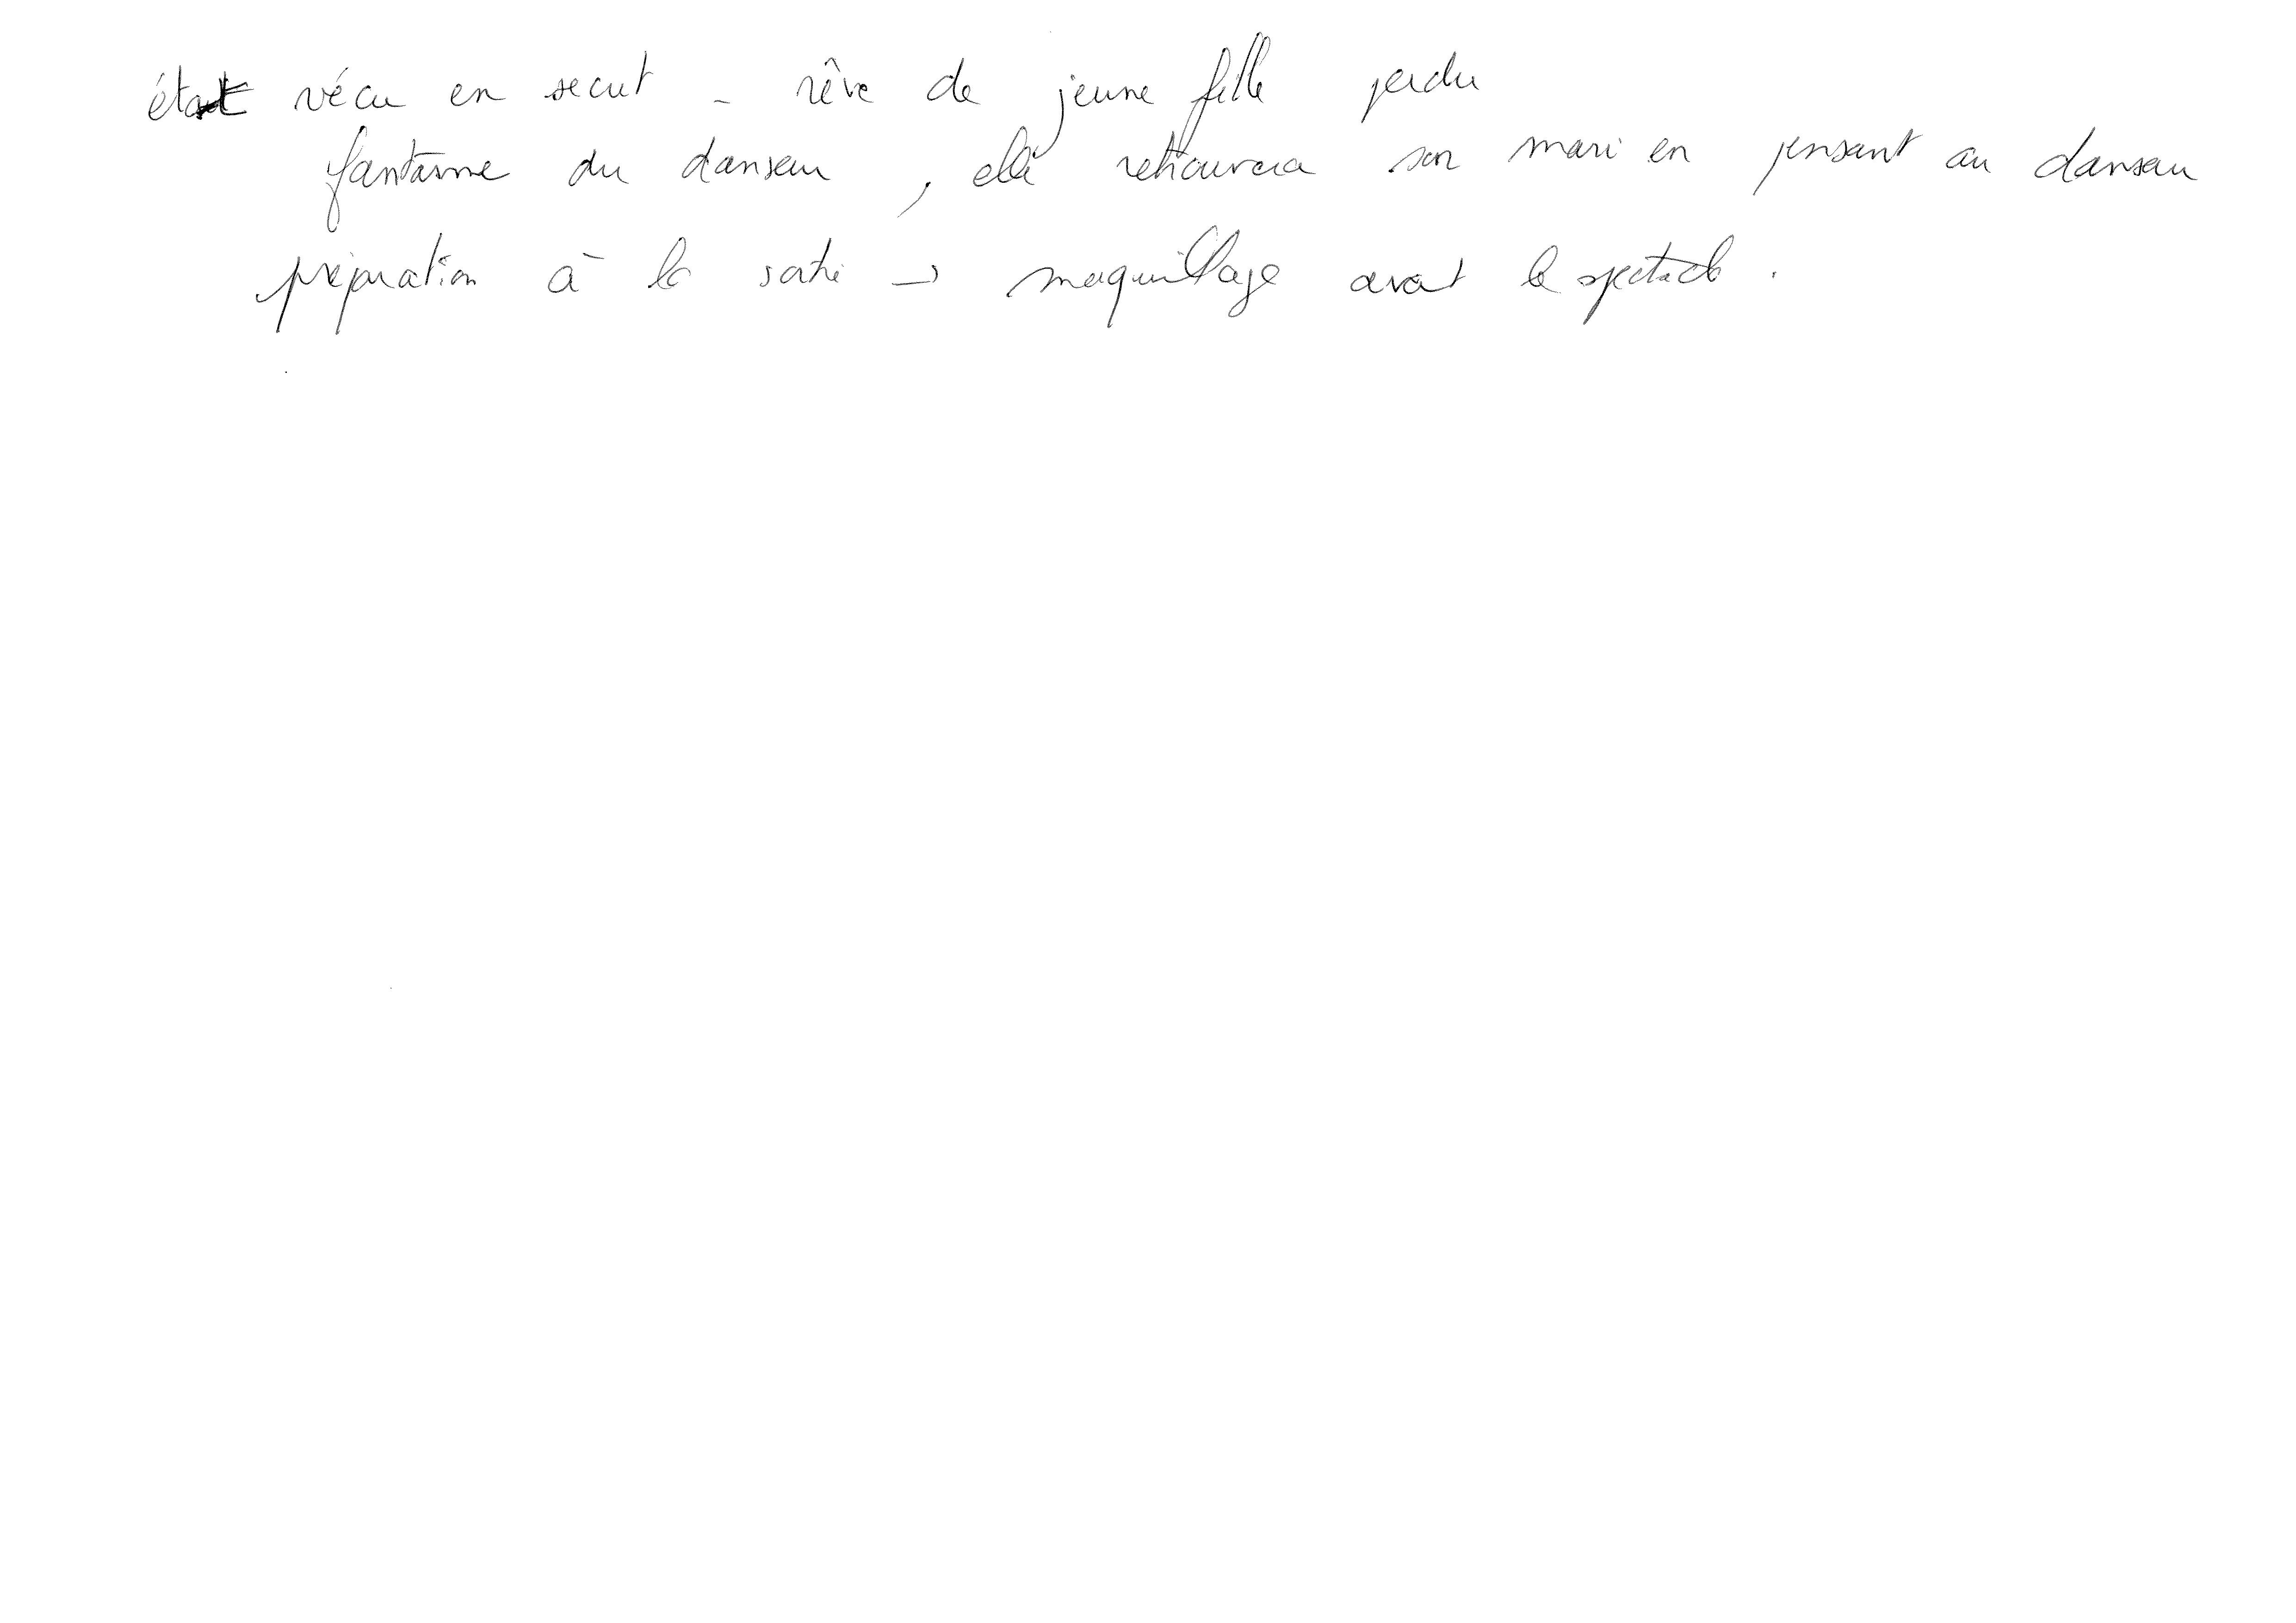 état vécu en secret - rêve de jeune fille perdu
fantasme du danseur, elle retrouvera son mari en pensant au danseur
préparation à la sortie → maquillage avant le spectacle.